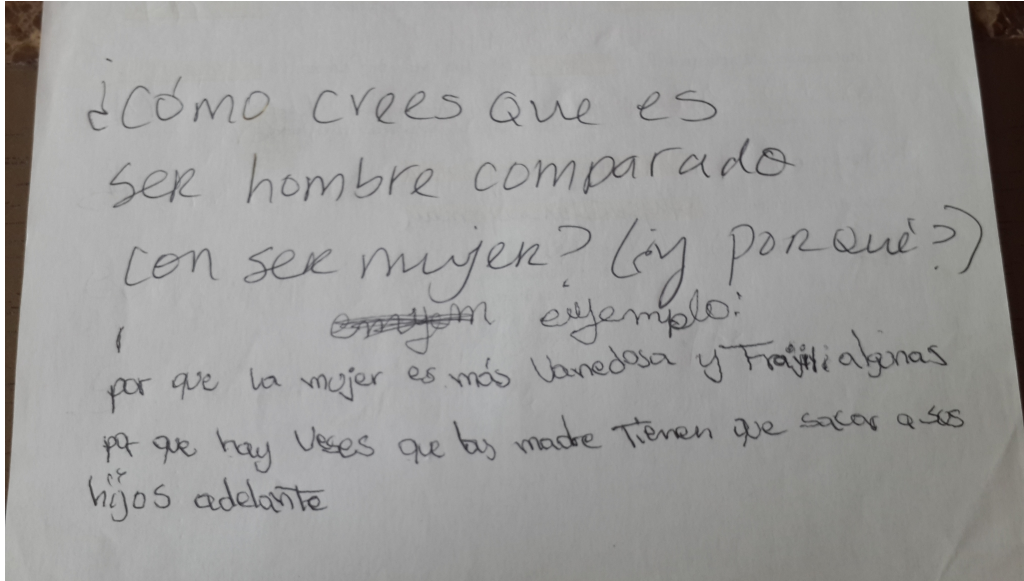 ¿Cómo crees que es
ser hombre comparado
con ser mujer? (¿y por qué?)
ejemplo:
por que la mujer es más Vanedosa y Frajil algunas
por que hay Veses que las madre Tienen que sacar a sus
hijos adelante